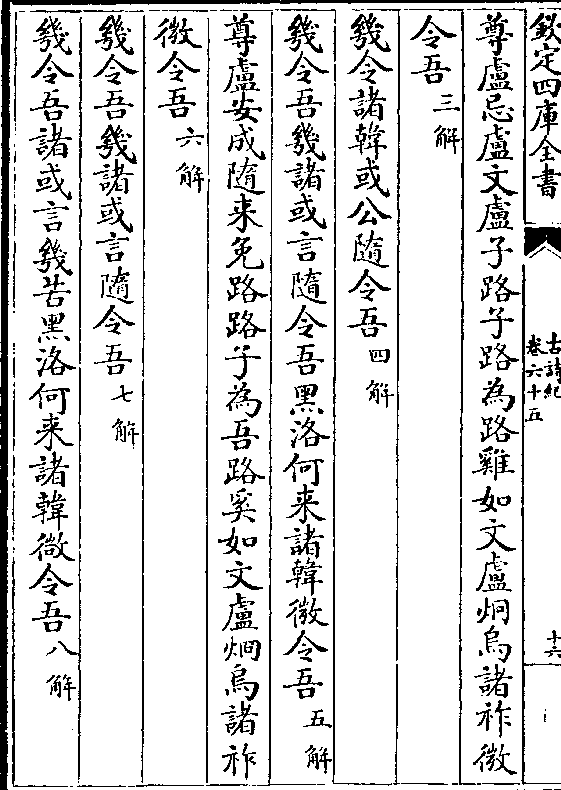 欽定四庫全書
古詩紀
卷六十五
十六
尊盧忌盧文盧子路子路為路雞如文盧炯烏諸祚微
令吾三解
幾令諸韓或公隨令吾四解
幾令吾幾諸或言隨令吾黑洛何来諸韓微令吾五解
尊盧安成隨来免路路子為吾路奚如文盧炯烏諸祚
微令吾六解
幾令吾幾諸或言隨令吾七解
幾令吾諸或言幾苦黑洛何来諸韓微令吾八解